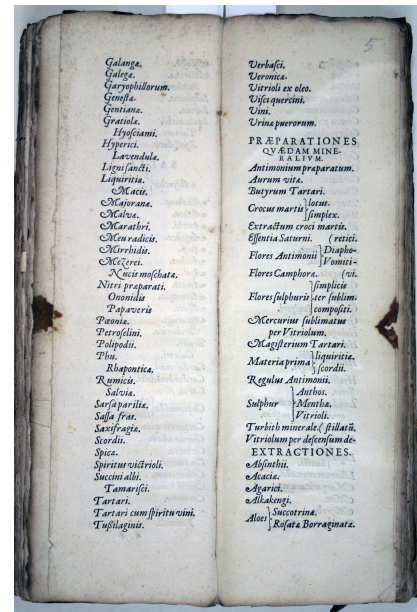 Galangæ.
Galegæ.
Garyophillorum.
Genestæ.
Gentianæ.
Gratiolæ.
Hyosciami.
Hyperici.
Lavendulæ.
Ligni sancti.
Liquiritiæ.
Macis.
Majoranæ.
Malvæ.
Marathri.
Meu radicis.
Mirrhidis.
Mezerei.
Nucis moschatæ.
Nitri præparati.
Ononidis
Papaveris
Pæoniæ.
Petroselini.
Polipodii.
Phu.
Rhaponticæ.
Rumicis.
Salviæ.
Sarsa pariliæ.
Sassa fras.
Saxifragiæ.
Scordii.
Spicæ.
Spiritus victrioli.
Succini albi.
Tamarisci.
Tartari.
Tartari cum spiritu vini.
Tußilaginis.
5
Verbasci.
Veronicæ.
Vitrioli ex oleo.
Visci quercini.
Vini.
Urinæ puerorum.
PRÆPARATIONES
QVÆDAM MINE-
RALIVM.
Antimonium præparatum.
Aurum vitæ.
Butyrum Tartari.
Crocus martis } lotus.
simplex.
Extractum croci martis.
Essentia Saturni. ( retici.
Flores Antimonii } Diapho-
Vomiti-
Flores Camphoræ. (vi.
Flores sulphuris } simplicis
ter sublim.
compositi.
Mercurius sublimatus
per Vitriolum.
Magisterium Tartari.
Materia prima } liquiritiæ.
scordii.
Regulus Antimonii.
Sulphur } Anthos.
Menthæ.
Vitrioli.
Turbith minerale. ( stillatū.
Vitriolum per descensum de-
EXTRACTIONES.
Absinthii.
Acaciæ.
Agarici.
Alkakengi.
Aloes } Succotrinæ.
Rosatæ Borraginatæ.